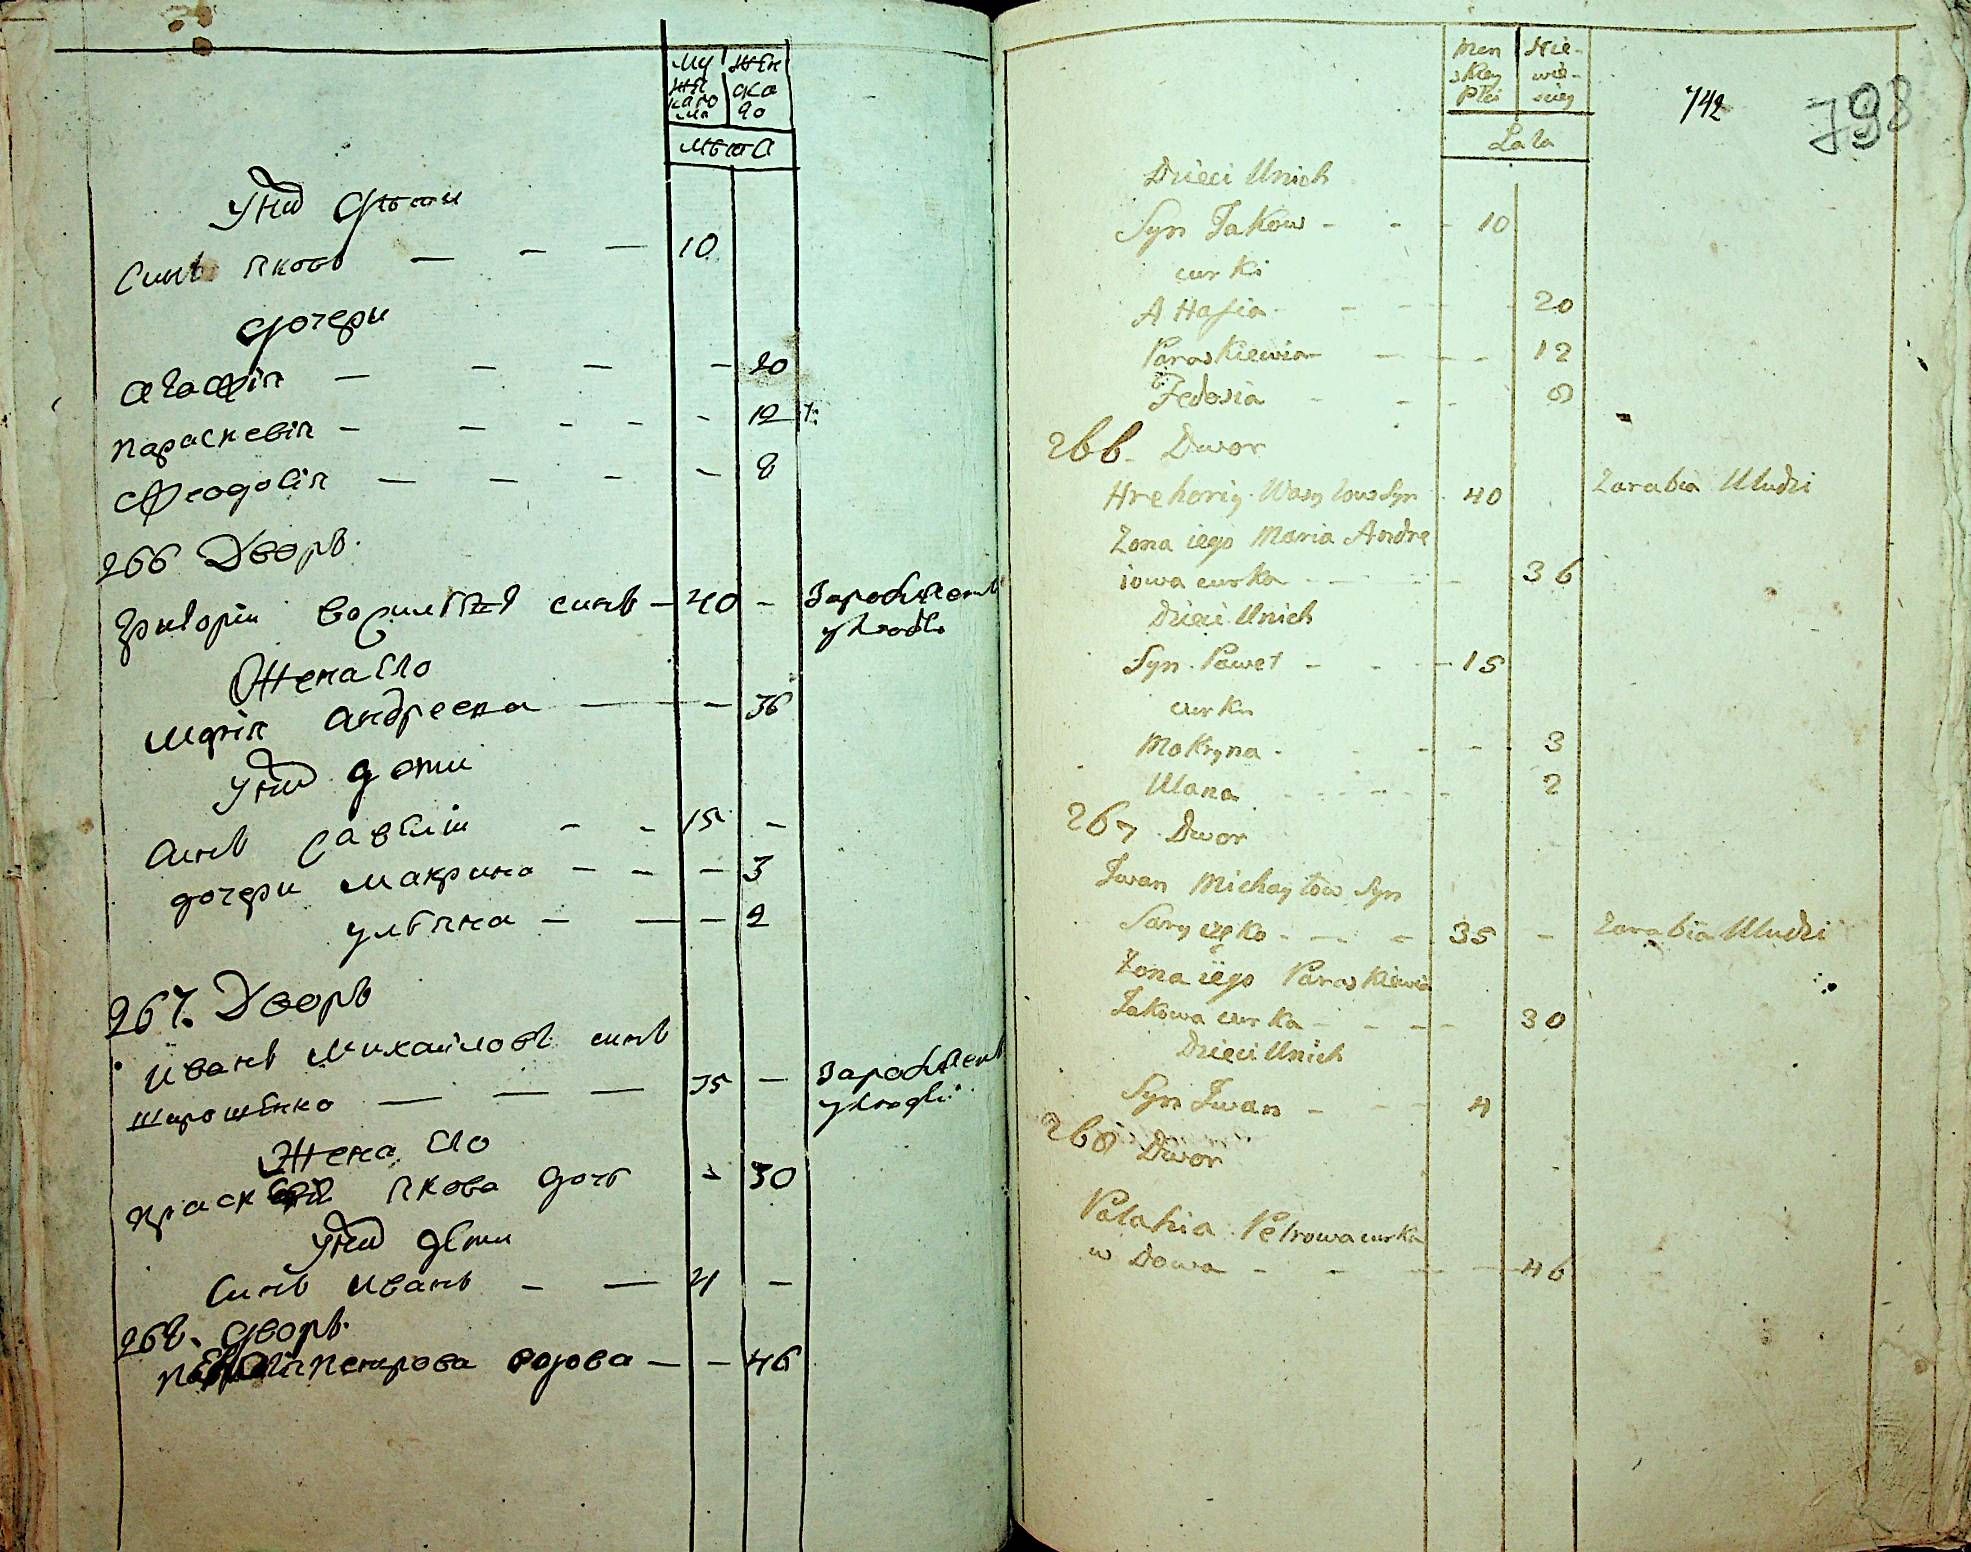 му жеска го пола
женска го
лѣта
У них дѣти
Синъ Яковъ — — — 10
дочери
Агафія — — — — 20
Параскевія — — — — 12
Феодосія — — — — 8
266 Дворъ.
Григорій Василѣевъ синъ — 40 — Зароблѣетъ
у людей
Жена его
Марія Андреева — — 36
У них дѣти
Синъ Савелій — — 15 —
дочери Макрина — — — 3
Улѣяна — — — 2
267. Дворъ
Иванъ Михайловъ синъ
Шарошенко — — — 35 — Зароблѣетъ
у людей
Жена его
Праскевія Якова дочь — 30
У них дѣти
Синъ Иванъ — — 4 —
268. Дворъ.
Петрова вдова — — 46
Men skiey Płci
Nie wie sciey
742
798
Lata
Dzieci Unich
Syn Jakow - - - 10
curki
AHafia - - - - 20
Paraskiewia - - - - 12
Fedosia - - - 8
266 Dwor
Hrehoriy Wasylow Syn - 40 Zarabia Uludzi
Zona iego Maria Andre
iowa curka - - - - 36
Dzieci Unich
Syn Paweł - - - 15
curki
Makryna - - - - 3
Ulana - - - - 2
267 Dwor
Jwan Michayłow Syn
Szaryszeko - - - 35 - Zarabia Uludzi
Zona iego Paraskiewia
Jakowa curka - - - - 30
Dzieci Unich
Syn Jwan - - - 4
268 Dwor
Palahia Petrowa curka
wDowa - - - - 46